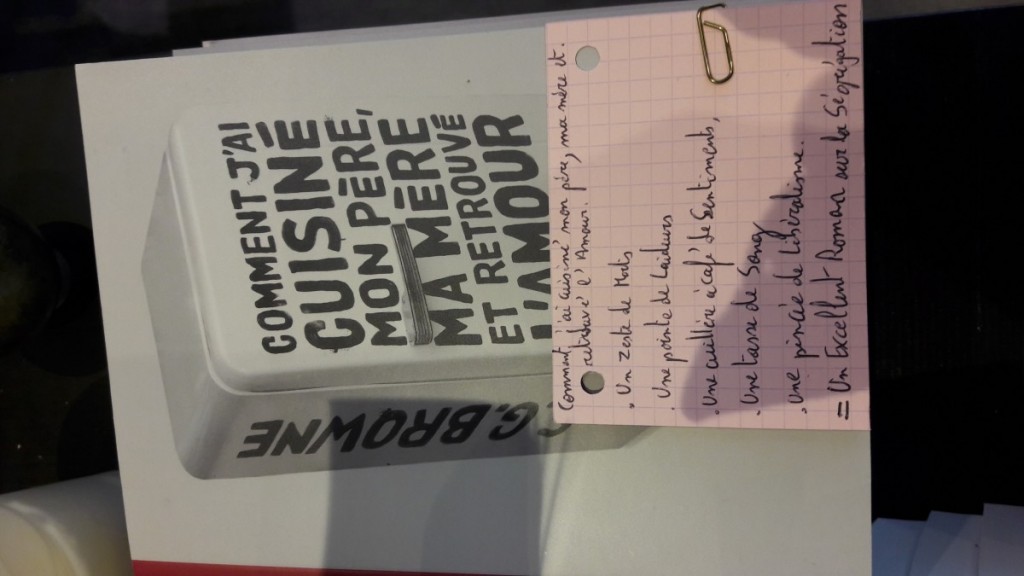 COMMENT J'AI
CUISINÉ
MON PÈRE,
MA MÈRE
ET RETROUVÉ
L'AMOUR
G.BROWNE
Comment j'ai cuisiné mon père, ma mère et
retrouvé l'Amour.
. Un zeste de Mots
. Une pointe de
. Une cuillère à café de Sentiments,
. Une tasse de
. Une pincée de libéralisme.
= Un Excellent Roman sur la Ségrégation